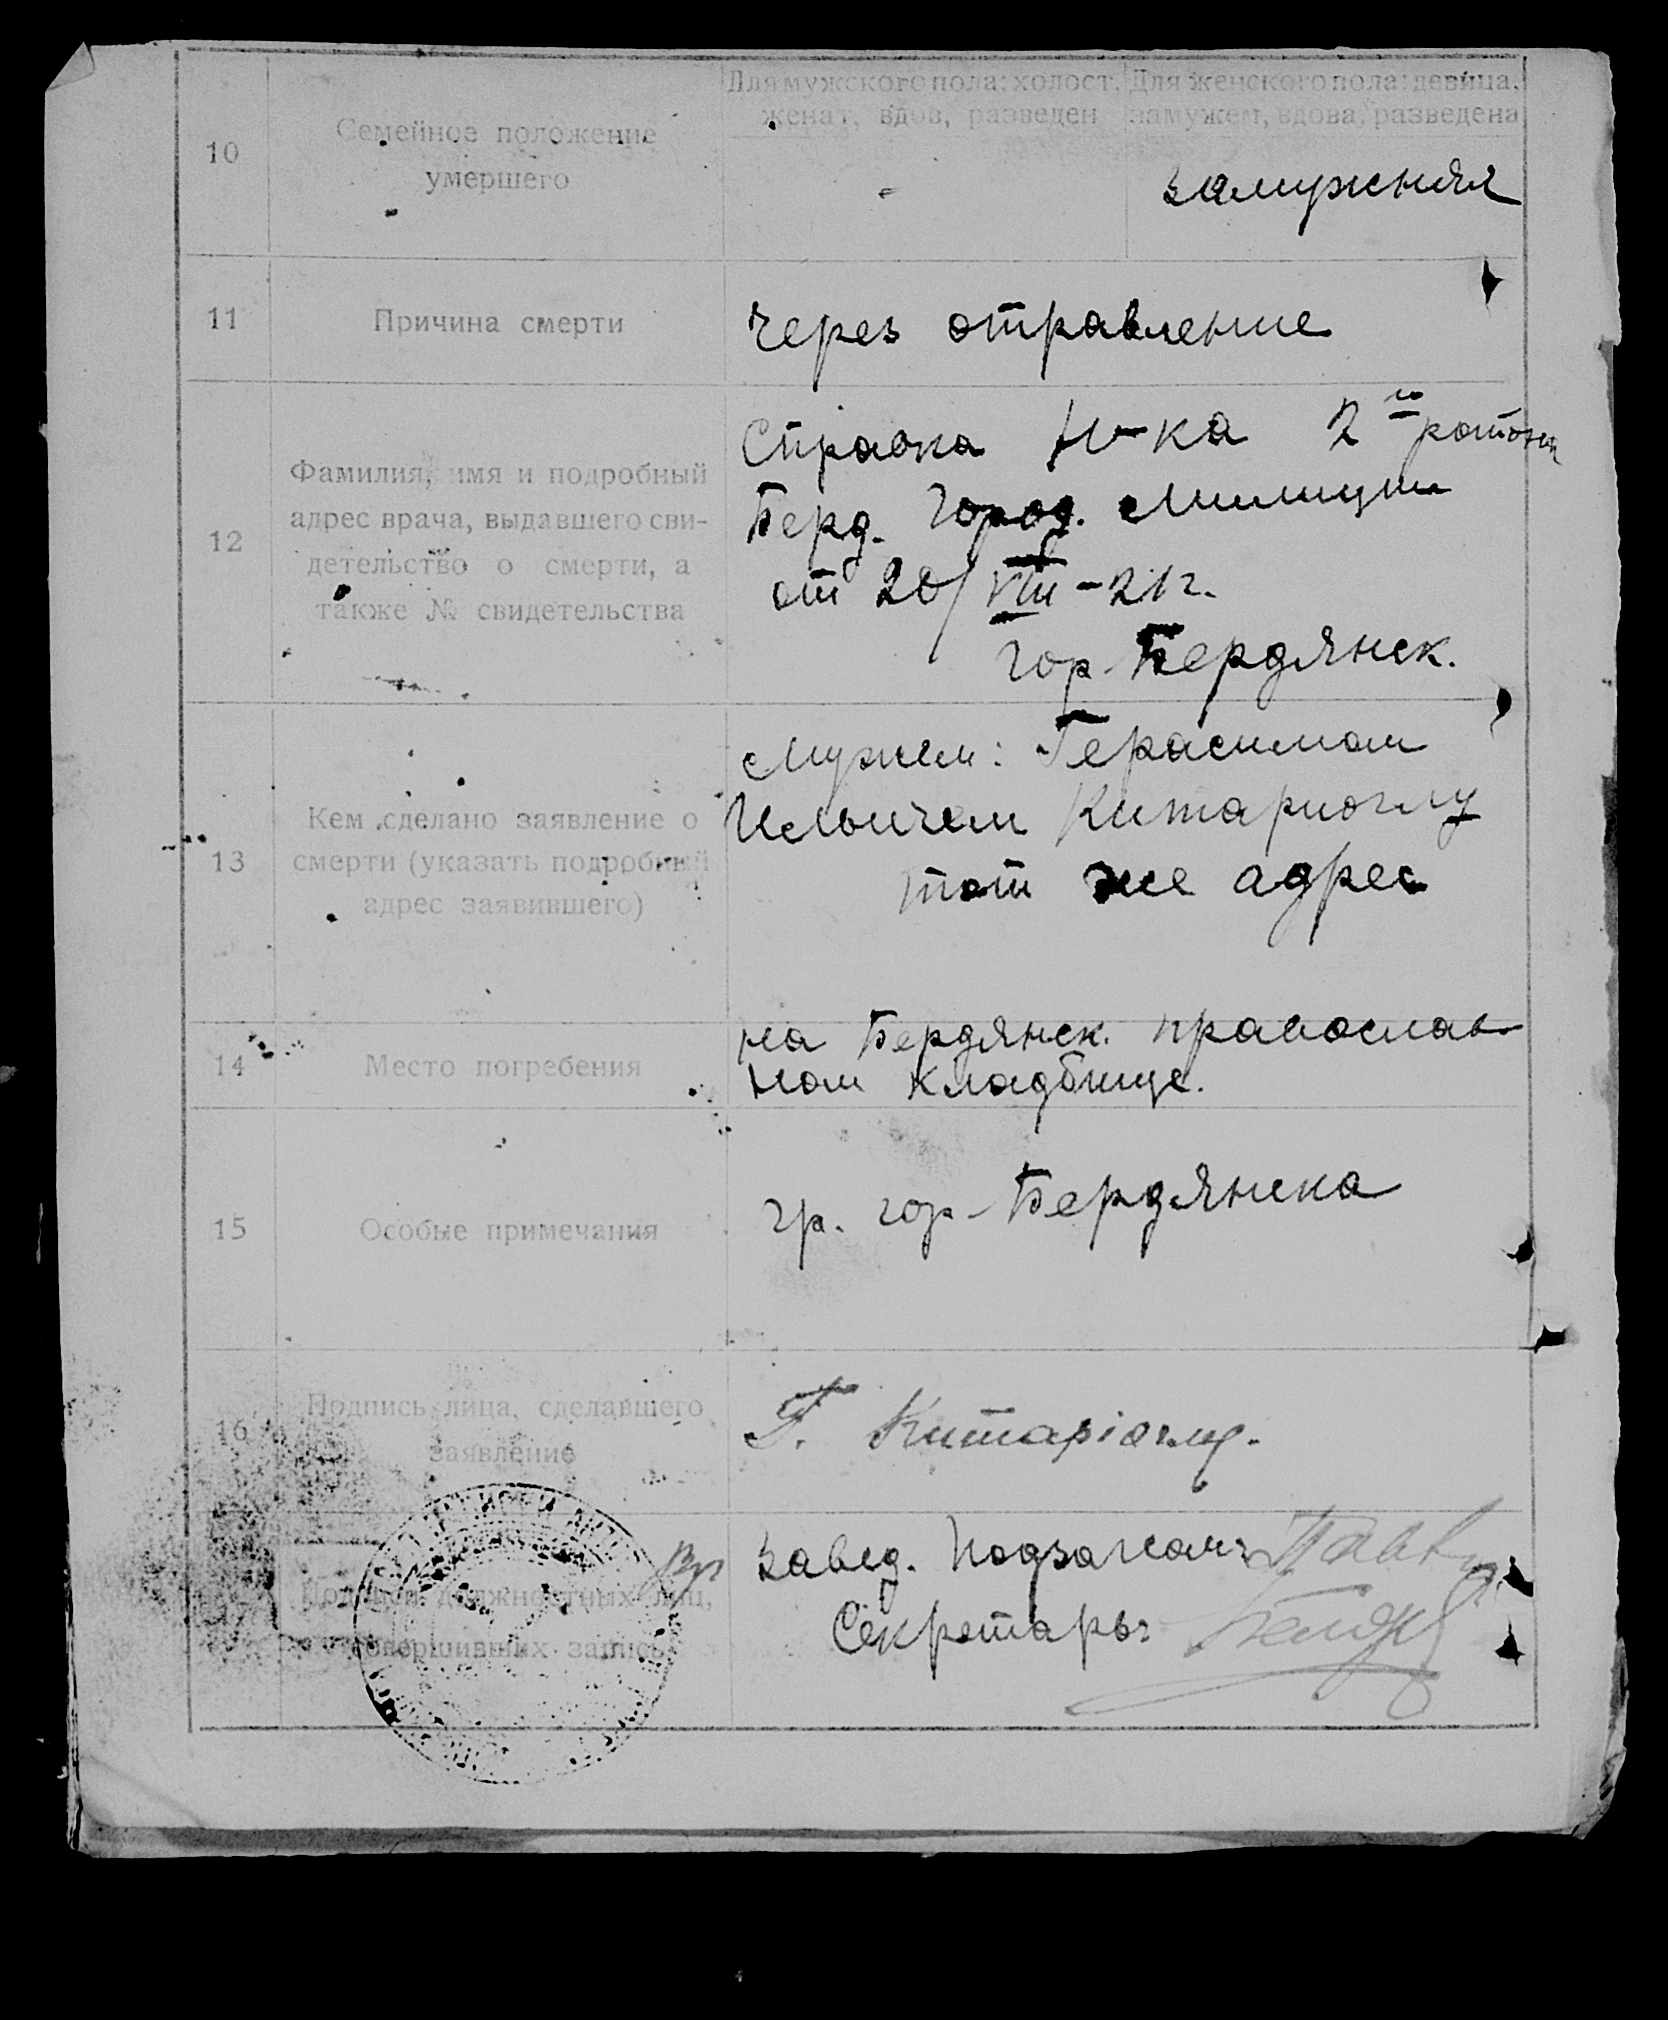 Для мужского пола: холост, женат, вдов, разведен
Для женского пола: девица, замужем, вдова, разведена
10
Семейное положение
умершего
-
замужняя
11
Причина смерти
через отравление
12
Фамилия, имя и подробный
адрес врача, выдавшего сви-
детельство о смерти, а
также № свидетельства
Справка Н-ка 2й
Берд. Город. Милиции
от 20/VIII-21г.
гор. Бердянск.
13
Кем сделано заявление о
смерти (указать подробный
адрес заявившего)
Мужем: Герасимом
Ильичем Китариоглу
тот же адрес
14
Место погребения
на Бердянск. православ-
ном кладбище.
15
Особые примечания
гр. гор. Бердянска
16
Подпись лица, сделавшего
заявление
Г. Китаріоглу.
Подписи должностных лиц,
совершивших запись
Завед. Подзагсом:
Секретарь: